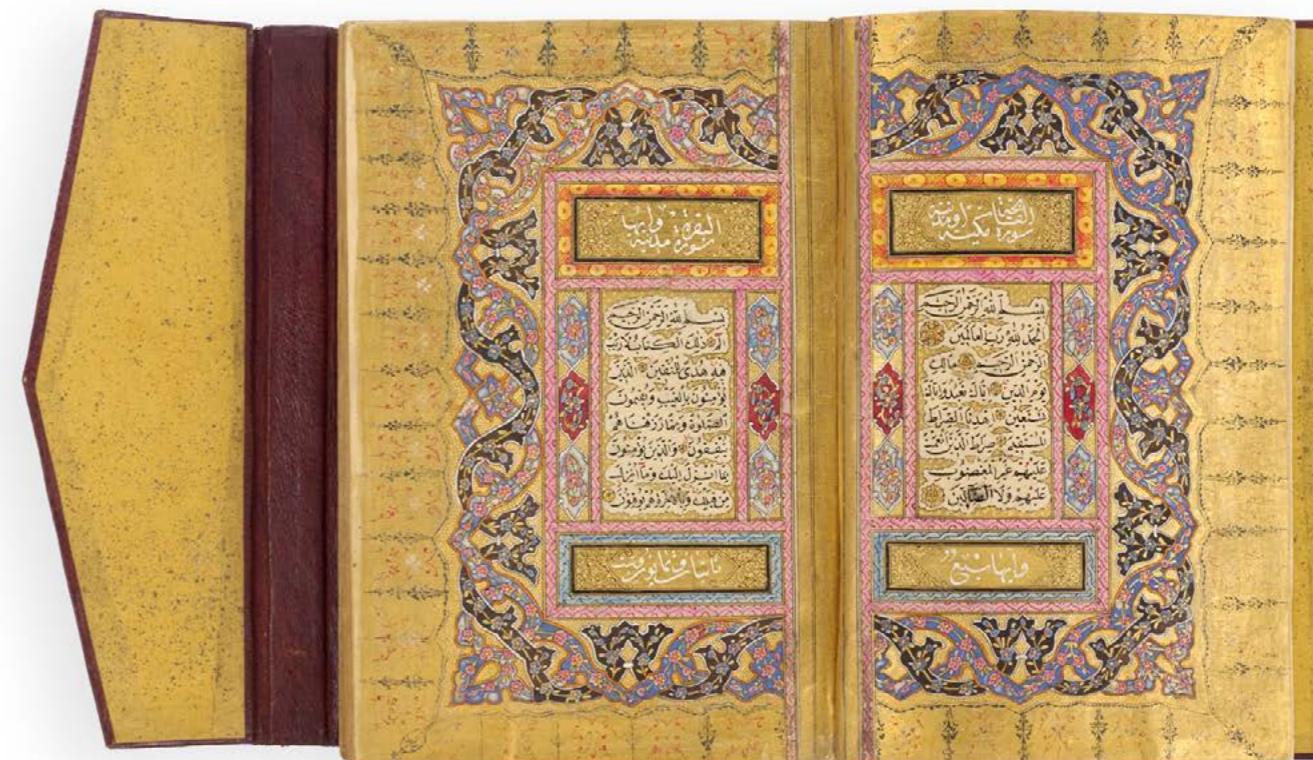 سورة الفاتحة مكية
بِسْمِ اللهِ الرَّحْمٰنِ الرَّحِيمِ
اَلْحَمْدُ لِلّٰهِ رَبِّ الْعَالَمِينَ
اَلرَّحْمٰنِ الرَّحِيمِ مَالِكِ
يَوْمِ الدِّينِ اِيَّاكَ نَعْبُدُ وَاِيَّاكَ
نَسْتَعِينُ اِهْدِنَا الصِّرَاطَ
الْمُسْتَقِيمَ صِرَاطَ الَّذِينَ اَنْعَمْتَ
عَلَيْهِمْ غَيْرِ الْمَغْضُوبِ
عَلَيْهِمْ وَلَا الضَّالِّينَ
وايها سبع
سورة البقرة مدنية وايها
بِسْمِ اللهِ الرَّحْمٰنِ الرَّحِيمِ
الٓمٓ ذٰلِكَ الْكِتَابُ لَا رَيْبَ
فِيهِ هُدًى لِلْمُتَّقِينَ اَلَّذِينَ
يُؤْمِنُونَ بِالْغَيْبِ وَيُقِيمُونَ
الصَّلٰوةَ وَمِمَّا رَزَقْنَاهُمْ
يُنْفِقُونَ وَالَّذِينَ يُؤْمِنُونَ
بِمَا اُنْزِلَ اِلَيْكَ وَمَا اُنْزِلَ
مِنْ قَبْلِكَ وَبِالْاٰخِرَةِ هُمْ يُوقِنُونَ
مائتان وثمانون وست